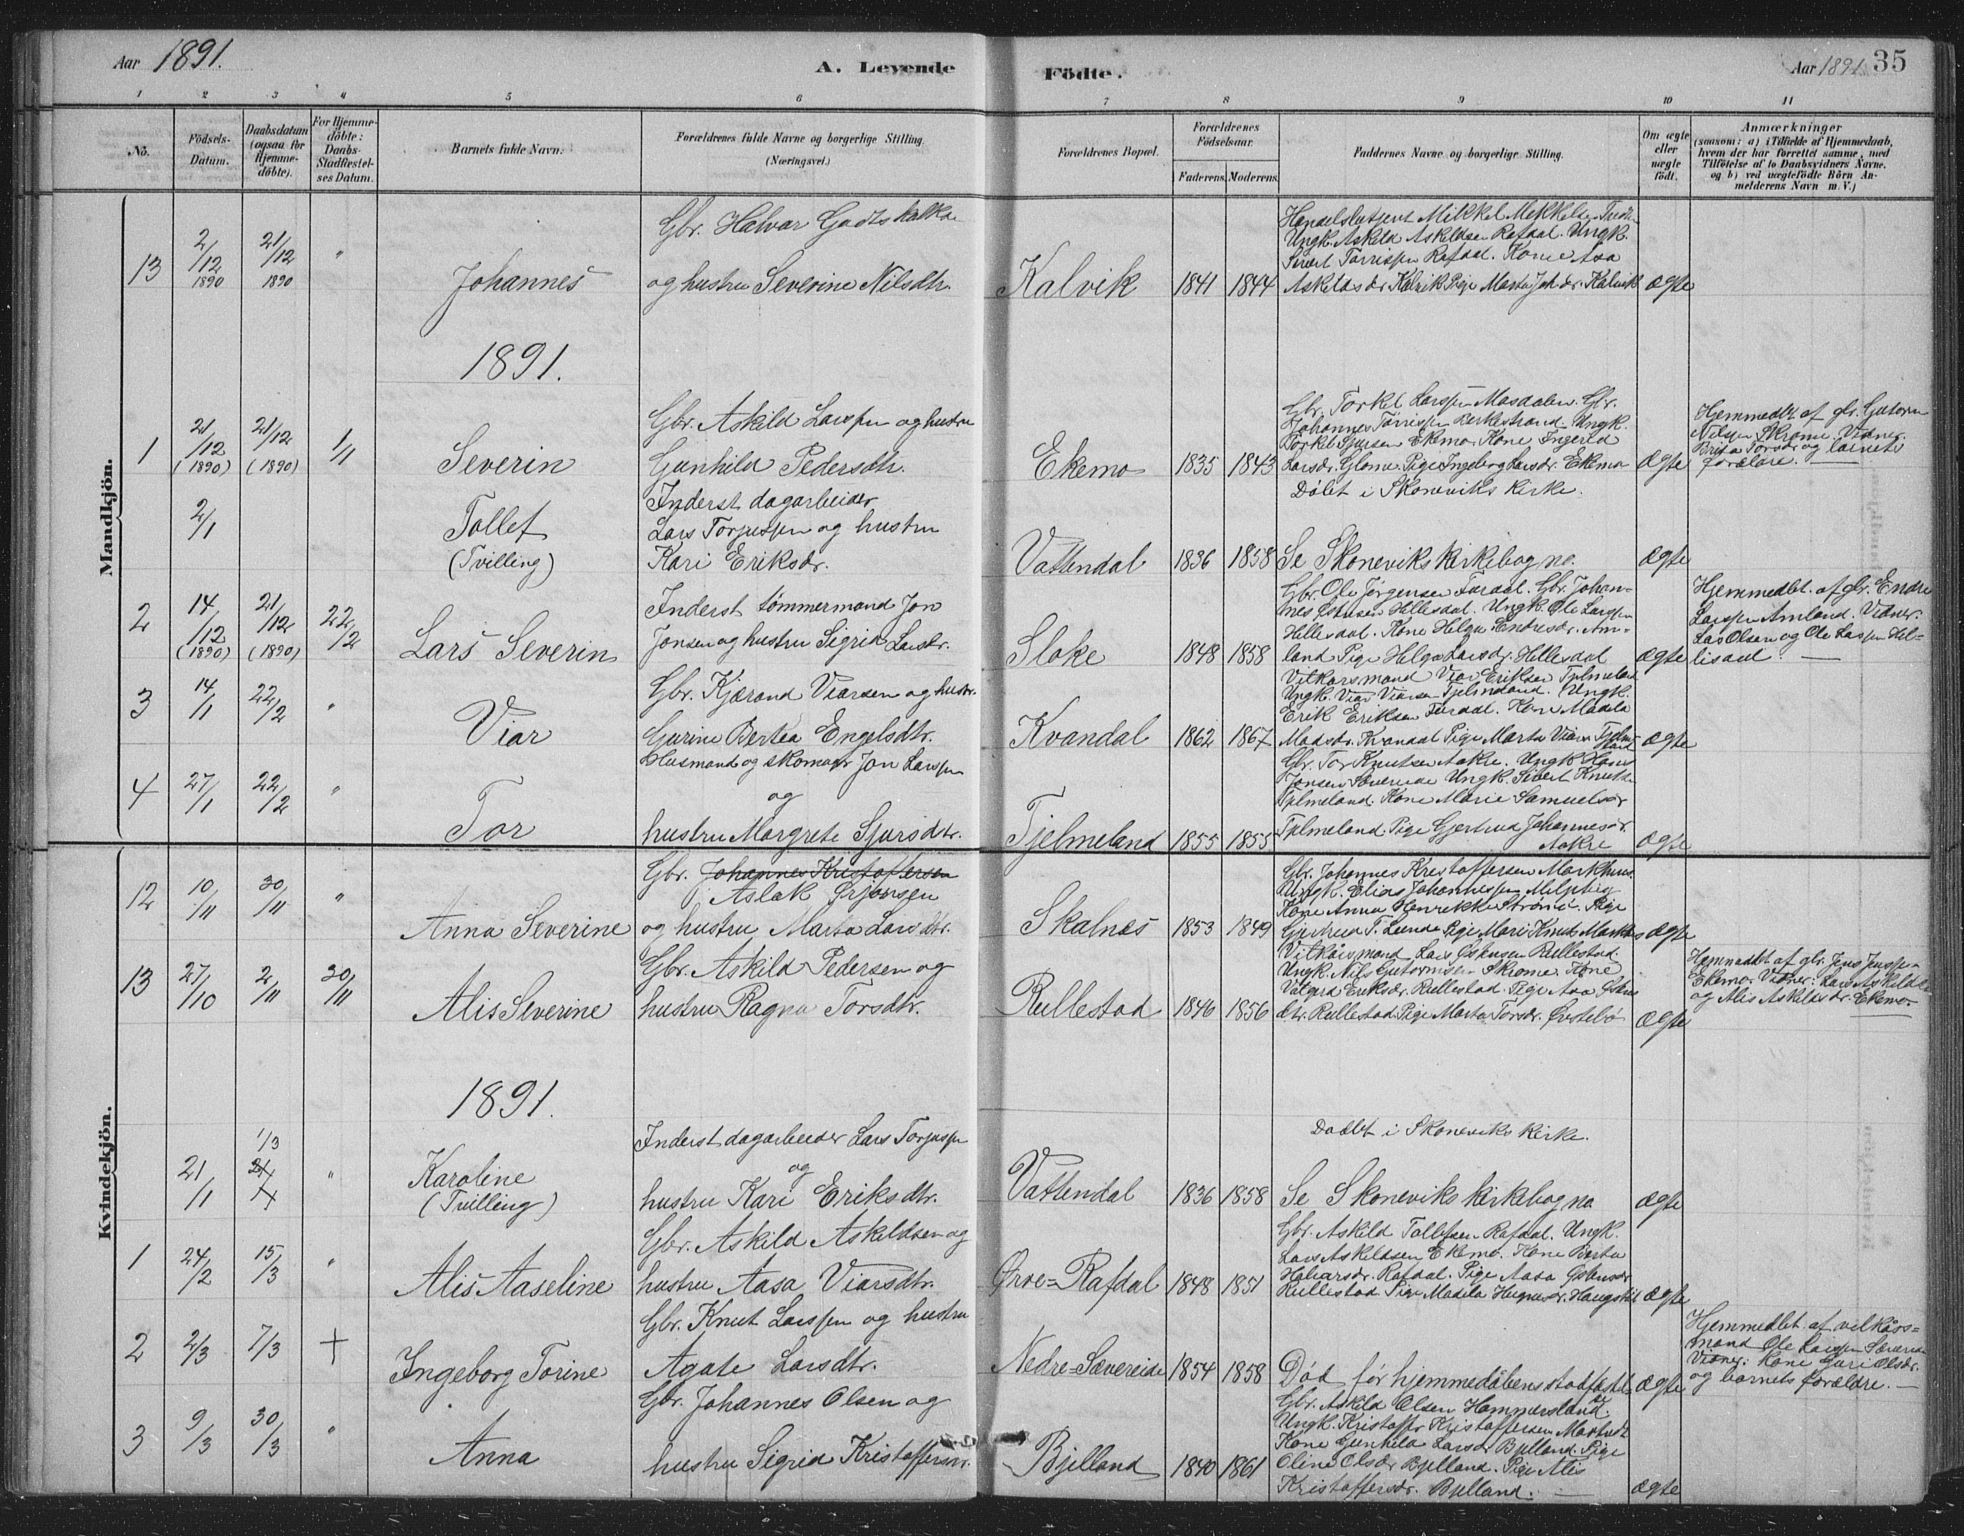 Aar 1891.
A. Levende
Födte.
Aar 1891
35
1 2 3 4 5 6 7 8 9 10 11
No.
Födsels-
Datum.
Daabsdatum
(ogsaa for
Hjemme-
döbte).
For Hjemme-
döbte:
Daabs-
Stadfæstel-
ses Datum.
Barnets fulde Navn.
Forældrenes fulde Navne og borgerlige Stilling
(Næringsvei.)
Forældrenes Bopæl.
Forældrenes
Födselsaar.
Faderens. Moderens.
Faddernes Navne og borgerlige Stilling.
Om ægte
eller
uægte
födt.
Anmærkninger
(saasom: a) i Tilfælde af Hjemmedaab,
hvem der har forrettet samme, med
Tilföielse af to Daabsvidners Navne.
og b) ved uægtefödte Börn An-
melderens Navn m. V.)
Mandkjön.
13
2/12
1890
21/12
1890
"
Johannes
Gbr. Halvar Godtskalks
og hustru Severine Nilsdtr.
Kalvik
1841
1844
Ungk. Askild Askildsen Rafdal. Ungk.
Sivert Tørrissen Rafdal. Kone Asa
Askildsdr. Kalvik Pige Marta Joh.dr. Kalvik
ægte
1891.
1
21/12
(1890)
21/12
(1890)
1/1
Severin
Gbr. Askild Larssen og hustru
Gunhild Pedersdtr.
Ekemo
1835
1843
Gbr. Torkel Larssen Mosdalen. Gbr.
Johannes Tørrissen Birkestrand. Ungk.
Torkel Sjursen Ekemo. Kone Ingerid
Larsdr. Glomo. Pige Ingeborg Larsdr. Ekemo
ægte
Hjemmedbt. af gbr. Gutorm
Nilssen Skromo. Vidner:
Brita Torsdr. og barnets
forældre. —
2/1
Tollef
(Tvilling)
Inderst dagarbeider
Lars Torjussen og hustru
Kari Eriksdr.
Vattendal
1836
1858
Døbt i Skoneviks Kirke.
Se Skoneviks kirkebog no.
ægte
2
14/12
(1890)
21/12
(1890)
22/2
Lars Severin
Inderst tømmermand Jon
Jonsen og hustru Sigrid Larsdtr.
Sloke
1848
1858
Gbr. Ole Jørgensen Furdal. Gbr. Johan-
nes Østensen Hillesdal. Ungk. Ole Larssen
Hillesdal. Kone Helga Endresdr. Am-
land Pige Helga Larsdr. Hillesdal
ægte
Hjemmedbt. af gbr. Endre
Larssen Amland. Vidner:
Lars Olsen og Ole Larssen Hil-
lisdal. —
3
14/1
22/2
"
Viar
Gbr. Kjærand Viarsen og hustr.
Gurine Bertea Engelsdtr.
Kvandal
1862
1867
Vilkarsmand Viar Eriksen Tjelmeland
Ungk. Viar Viarsen Tjelmeland. Ungk.
Erik Eriksen Furdal. Kone Madela
Madsdr. Kvandal Pige Marta Viarsdr. Tjelme-
land
ægte
4
27/1
22/2
"
Tor
Husmand og skomager Jon Larssen
og
hustru Margrete Sjursdtr.
Tjelmeland
1855
1855
Gbr. Tor Knutsen Aakre. Ungk. Hans
Jonsen Sævereide Ungk. Sivert Knuts.
Tjelmeland. Kone Marie Samuelsdr.
Tjelmeland. Pige Gjertrud Johannesdr.
Aakre
ægte
Kvindekjön.
12
10/11
30/11
"
Anna Severine
Gbr. Johannes Kristoffersen
Aslak Ørjansen
og hustru Marta Larsdtr.
Skalnes
1853
1849
Gbr. Johannes Kristoffersen Markhus.
Ungk. Elias Johannessen Milpberg
Kone Anna Henrikke Strømø. Pige
ægte
13
27/10
2/11
30/11
Alis Severine
Gbr. Askild Pedersen og
hustru Ragna Torsdtr.
Rullestad
1846
1856
Vilkårsmand Lars Østensen Rullestad.
Ungk. Nils Gutormsen Skromo. Kone
Valgerd Eriksdr. Rullestad. Pige Aasa Østens
dtr. Rullestad. Pige Marta Torsdr. Øvstebø
ægte
Hjemmedbt. af gbr. Jens Jenssen
Ekemo. Vidner: Lars Askildsen
og Alis Askildsdr. Ekemo.
1891.
21/1
1/3
"
Karoline
(Tvilling)
Inderst dagarbeider Lars Torjussen
og
hustru Kari Eriksdtr.
Vattendal
1836
1858
Døbt i Skoneviks Kirke.
Se Skoneviks kirkebog no.
ægte
1
24/2
15/3
"
Alis Aaseline
Gbr. Askild Askildsen og
hustru Aasa Viarsdtr.
Øvre-Rafdal
1848
1851
Gbr. Askild Tollefsen Rafdal. Ungk.
Lars Askildsen Ekemo. Kone Berta
Halvarsdr. Rafdal. Pige Aasa Østensdr.
Rullestad Pige Madela
ægte
2
2/3
7/3
+
Ingeborg Torine
Gbr. Knut Larssen og hustru
Agate Larsdtr.
Nedre-Sævereide
1854
1858
Død før hjemmedåbens stadfæst.
ægte
Hjemmedbt. af vilkårs-
mand Ole Larssen Sævereide
Vidner: Kone Guri Olsdr.
og barnets forældre. —
3
9/3
30/3
"
Anna
Gbr. Johannes Olsen og
hustru Sigrid Kristoffersdr.
Bjelland
1840
1861
Gbr. Askild Olsen Hammersland.
Ungk. Kristoffer Kristoffersen
Kone Gunhild Larsdr. Bjelland. Pige
Oline Olsdr. Bjelland. Pige Alis
Kristoffersdr. Bjelland. —
ægte